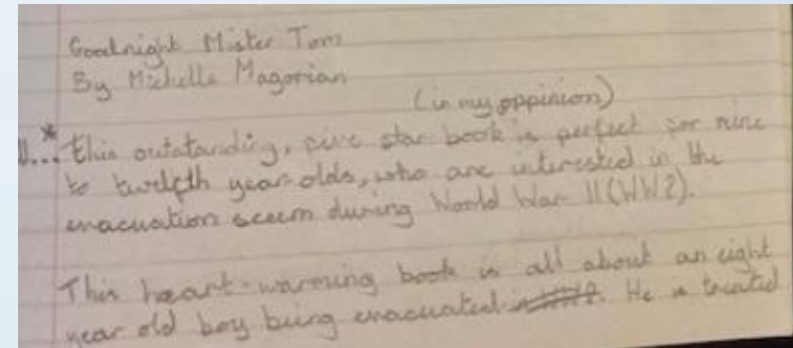 Goodnight Mister Tom
By Michelle Magorian
(in my oppinion)
* This outstanding, five star book is perfect for nine
to twelfth year-olds, who are interested in the
evacuation sceem during World War II (WW2).
This heart-warming book is all about an eight
year old boy being evacuated in WW2. He is treated